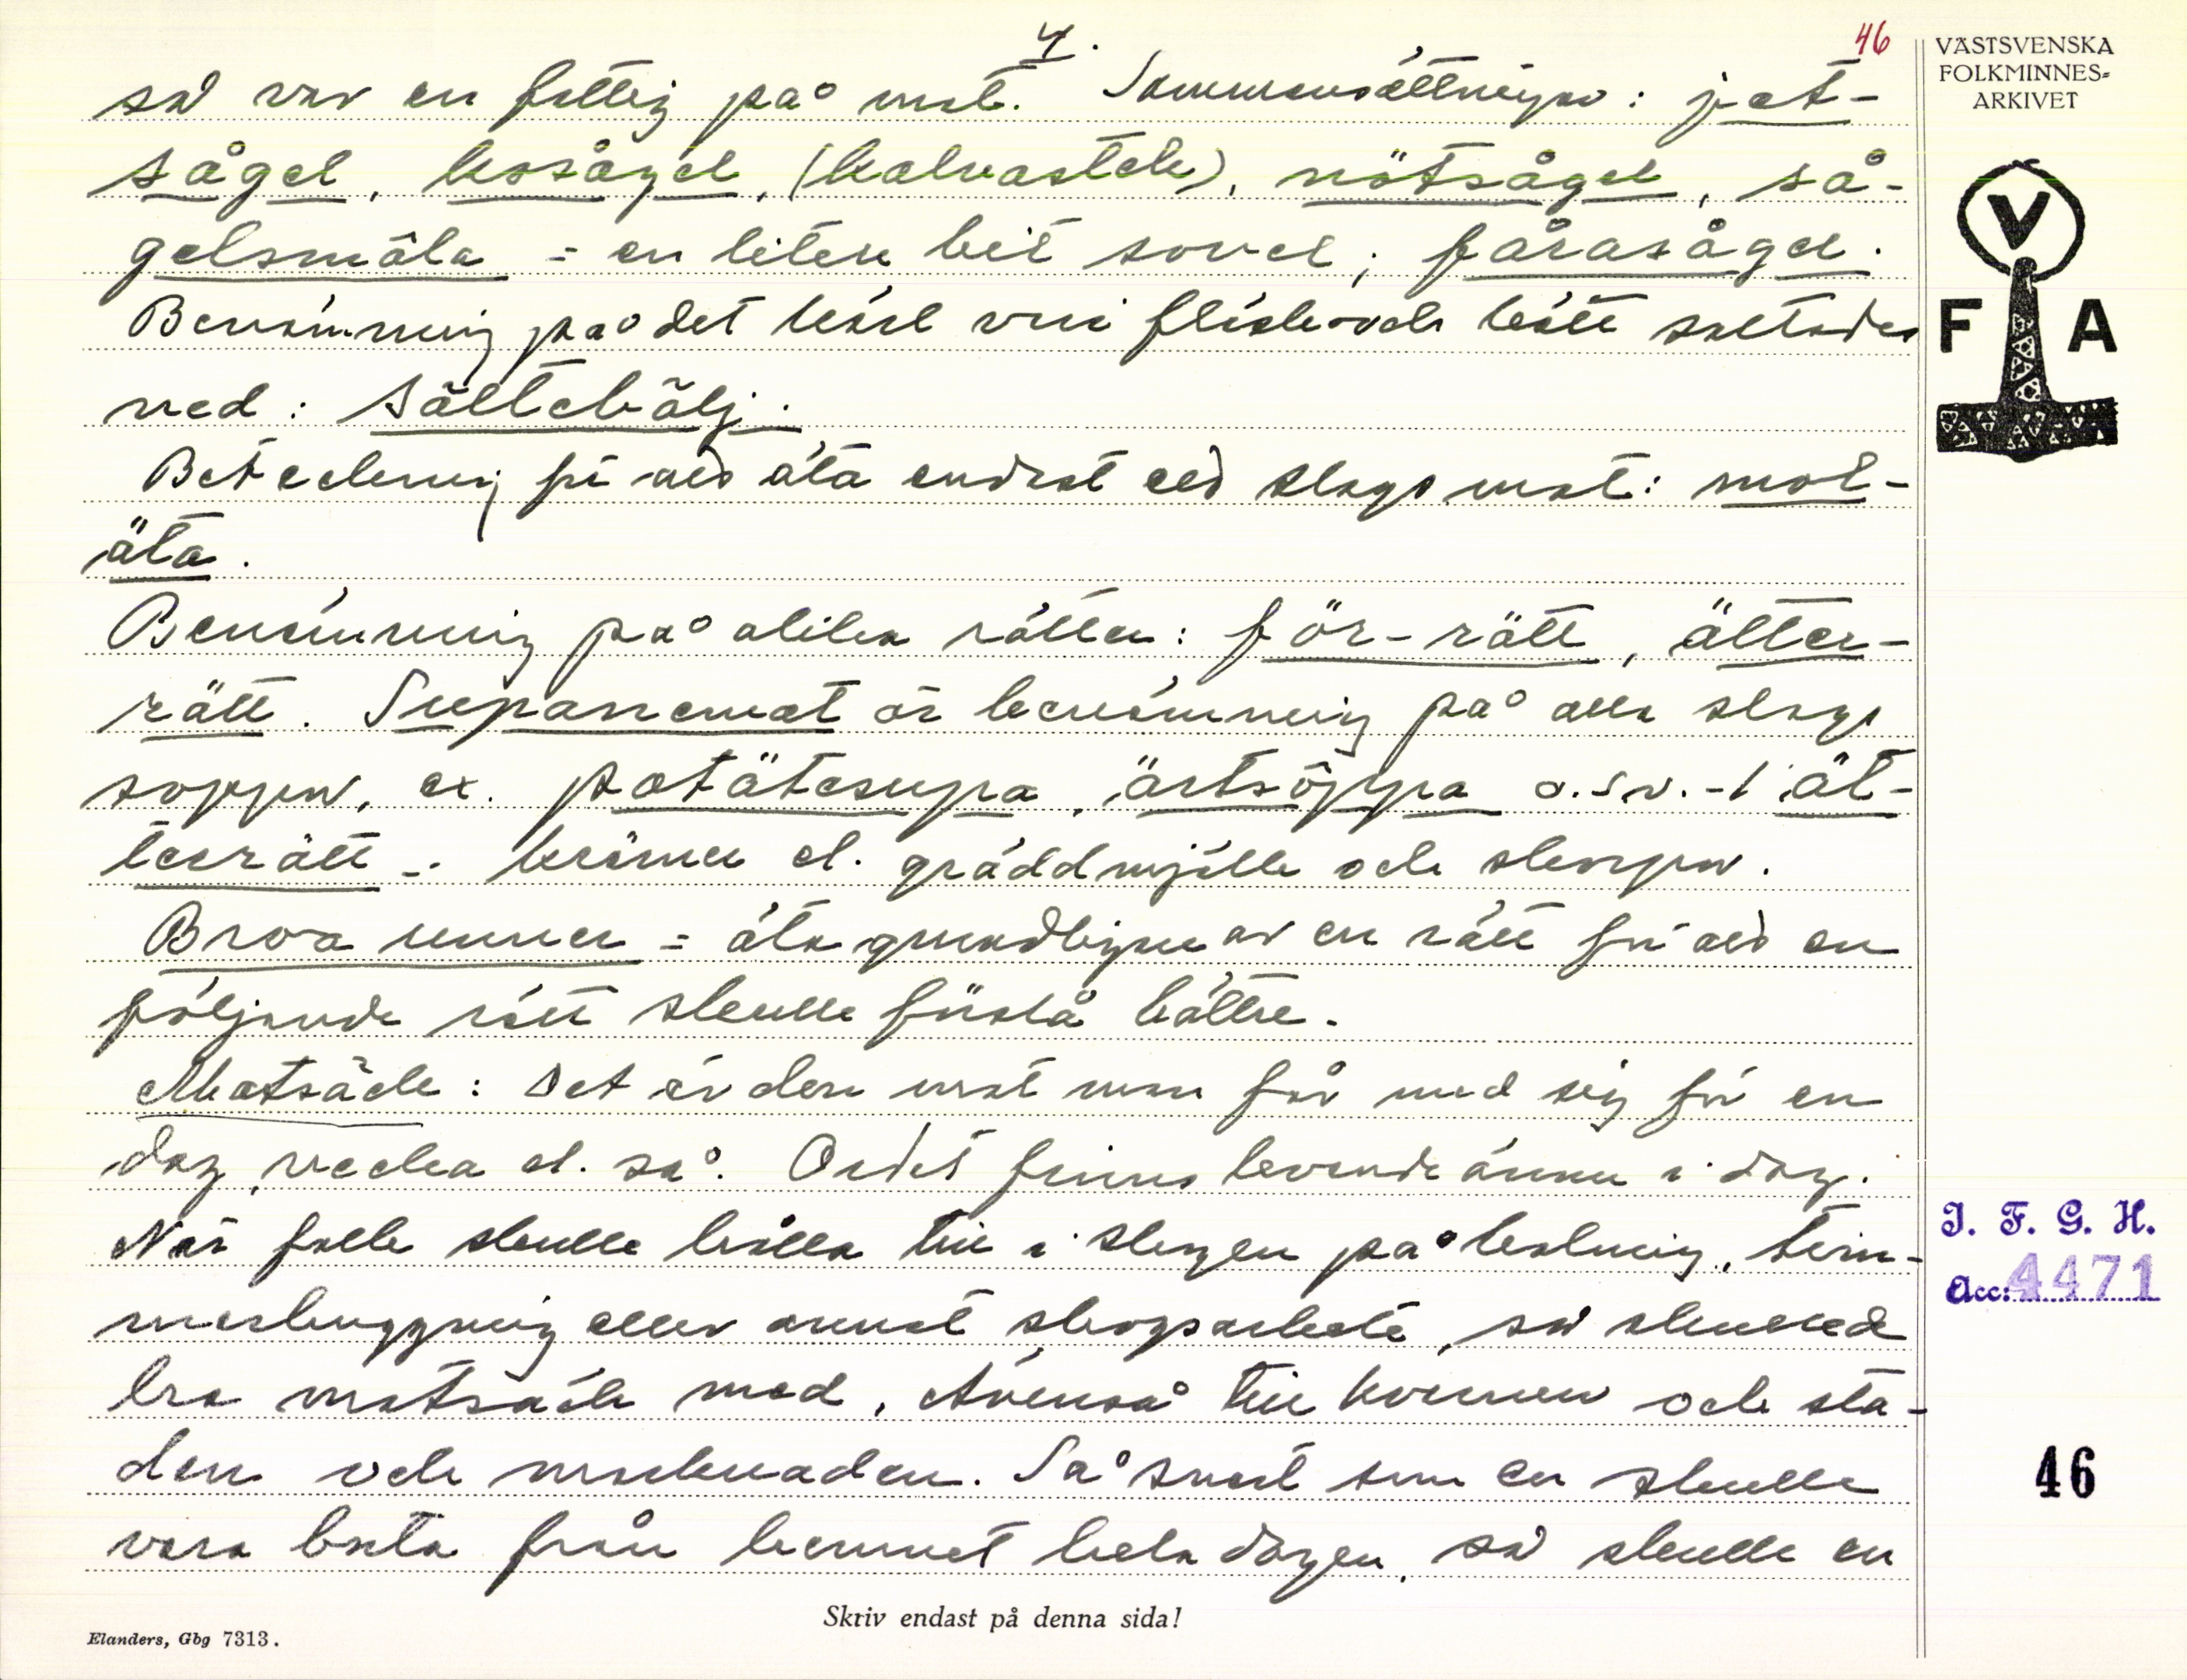 4.
46
så var en fattig på mat. Sammansättningar: jet-
sågel, kosågel, (kalvastek), nötsågel, så-
gelsmåla = en liten bit sovel; fårasågel.
Benämning på det kärl vari fläsk och kött saltades
ned: sältebälj.
Beteckning för att äta endast ett slags mat: mol-
äta.
Benämning på olika rätter: för-rätt, ätter-
rätt. Supanemat är benämning på alla slags
soppor, ex. potätesupa, ärtsöppa o.s.v. -
ät-
terätt - kräm el. gräddmjölk och skorpor.
Broa unner = äta grundligare av en rätt för att en
följande rätt skulle förslå bättre.
Matsäck: Det är den mat man får med sig för en
dag, vecka el. så. Ordet finns levande ännu i dag.
När folk skulle hålla till i skogen på kolning, tim-
merhuggning eller annat skogsarbete, så skulle de
ha matsäck med. Även så till kvarnen och sta-
den och marknaden. Så snart som en skulle
vara borta från hemmet hela dagen, så skulle en
VÄSTSVENSKA
FOLKMINNES-
ARKIVET
V
F A
I. F. G. H.
Acc: 4471
46
Skriv endast på denna sida!
Elanders, Gbg 7313.